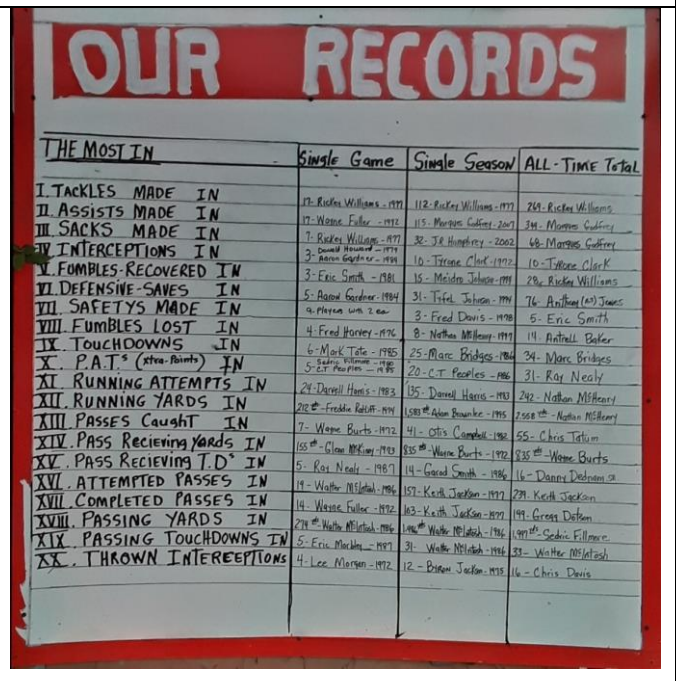 OUR RECORDS
THE MOST IN Single Game Single Season ALL-TIME Total
I. TACKLES MADE IN 17- Rickey Williams-1977 112- Rickey Williams-1977 269- Rickey Williams
II. ASSISTS MADE IN 17- Wayne Fuller-1972 115- Marques Godfrey-2007 344- Marques Godfrey
III. SACKS MADE IN 7- Rickey Williams-1977 32- J.R Humphrey-2002 68- Marques Godfrey
IV INTERCEPTIONS IN 3- Donald Howard-1979 Aaron Gardner-1984 10- Tyrone Clark-1972 10- Tyrone Clark
V. FUMBLES-RECOVERED IN 3- Eric Smith-1981 15- Meidro Johnson 28- Rickey Williams
VI. DEFENSIVE-SAVES IN 5- Aaron Gardner-1984 31- Johnson 76- Anthony Jones
VII. SAFETYS MADE IN 9. Players with 2 ea 3- Fred Davis-1978 5- Eric Smith
VIII. FUMBLES LOST IN 4- Fred Harvey-1976 8- Nathan McHenry 14- Antrell Baker
IX. TOUCHDOWNS IN 6- Mark Tate-1985 25- Marc Bridges-1986 34- Marc Bridges
X. P.A.T.s (xtra-Points) IN 5- Sedric Fillmore C.T Peoples 20- C.T Peoples-1986 31- Ray Nealy
XI. RUNNING ATTEMPTS IN 24- Darrell Harris-1983 135- Darrell Harris-1983 242- Nathan McHenry
XII. RUNNING YARDS IN 212- Freddie 1,583- Adam 2,558- Nathan McHenry
XIII. PASSES CaughT IN 7- Wayne Burts-1972 41- Otis Campbell-1982 55- Chris Tatum
XIV. PASS Recieving Yards IN 155- Glen 835- Wayne Burts-1972 835- Wayne Burts
XV. PASS Recieving T.Ds IN 5- Ray Nealy-1987 14- Smith-1986 16- Danny Dednam
XVI. ATTEMPTED PASSES IN 19- Walter McIntosh-1986 157- Keith Jackson-1977 279- Keith Jackson
XVII. COMPLETED PASSES IN 14- Wayne Fuller-1972 103- Keith Jackson-1977 149- Gregg Dotson
XVIII. PASSING YARDS IN 279- Walter McIntosh-1986 Walter McIntosh-1986 Sedric Fillmore
XIX. PASSING TOUCHDOWNS IN 5- Eric 31- Walter McIntosh-1986 33- Walter McIntosh
XX. THROWN INTERCEPTIONS 4- Lee Morgan-1972 12- Byron Jackson-1975 16- Chris Davis